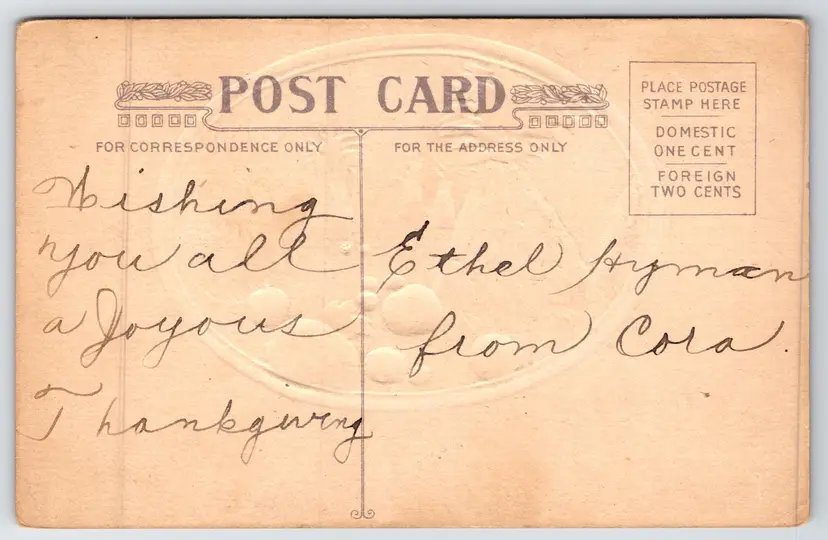 POST CARD
FOR CORRESPONDENCE ONLY
FOR THE ADDRESS ONLY
PLACE POSTAGE
STAMP HERE
DOMESTIC
ONE CENT
FOREIGN
TWO CENTS
Wishing
You all
a Joyous
Thankgiving
Ethel Hyman
from Cora.